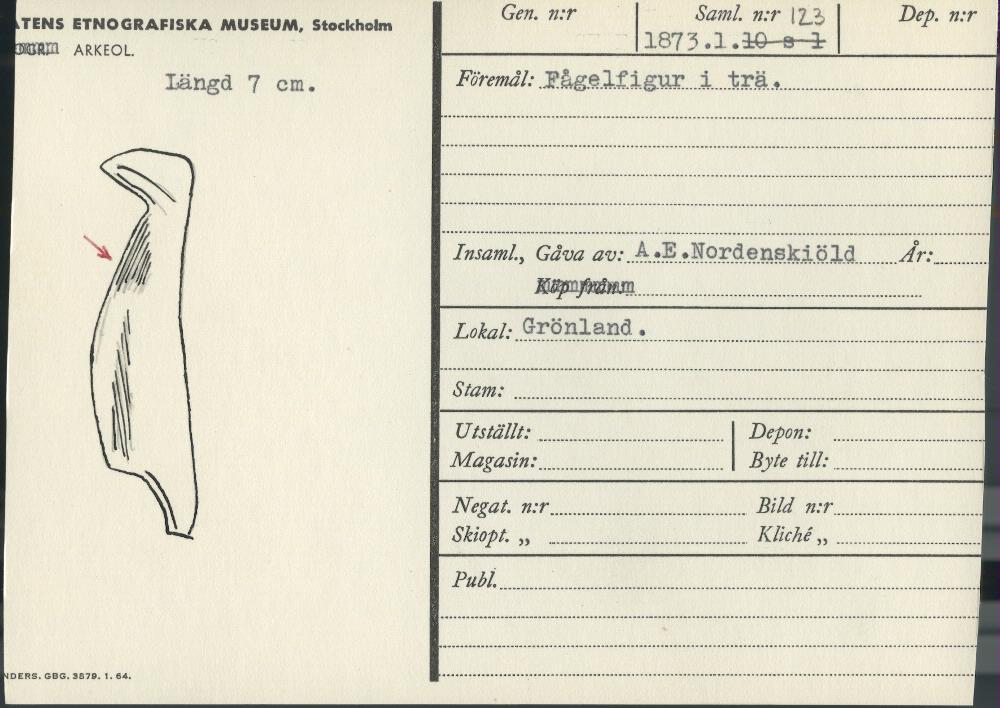 ATENS ETNOGRAFISKA MUSEUM, Stockholm
OGR. ARKEOL.
Längd 7 cm.
NDERS. GBG. 3879. 1. 64.
Gen. n:r
Saml. n:r 123
1873.1.10 s 1
Dep. n:r
Föremål: Fågelfigur i trä.
Insaml., Gåva av: A.E.Nordenskiöld År:
Köp från:
Lokal: Grönland.
Stam:
Utställt: Depon:
Magasin: Byte till:
Negat. n:r Bild n:r
Skiopt. „ Kliché „
Publ.